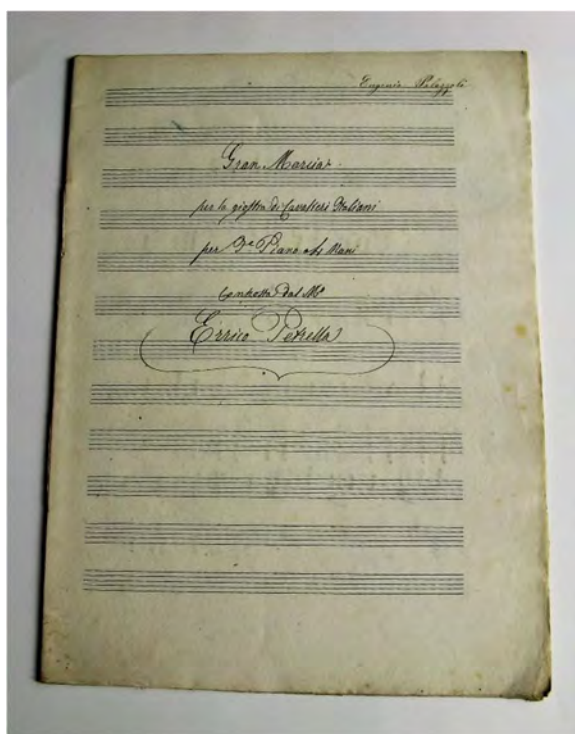 Eugenia Palazzoli
Gran Marcia
per la giostra di Cavalieri Italiani
per P.e Piano a 4 Mani
Composta dal M.o
Errico Petrella